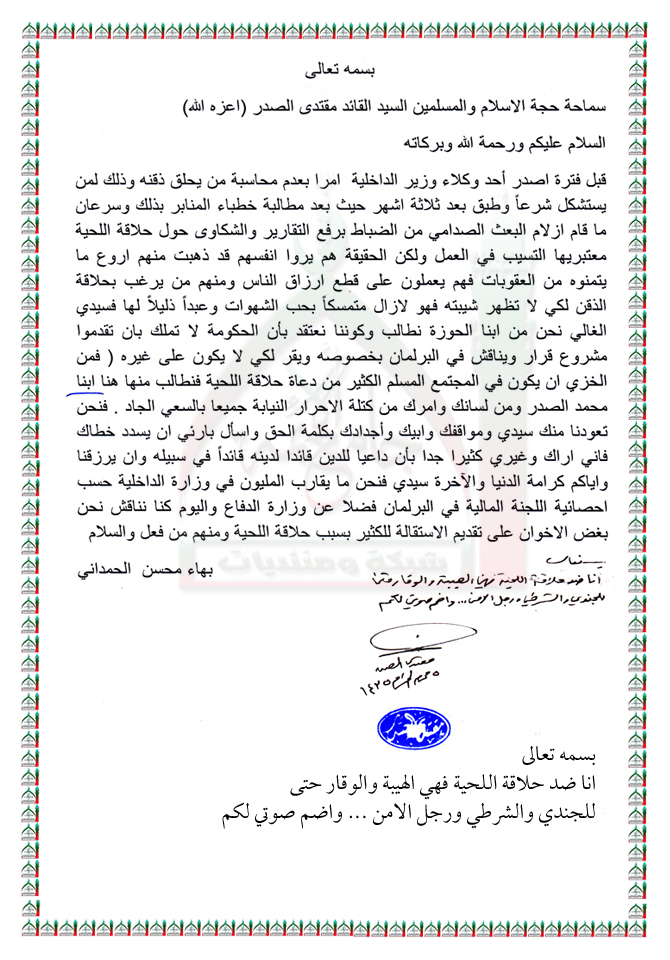 بسمه تعالى
سماحة حجة الاسلام والمسلمين السيد القائد مقتدى الصدر (اعزه الله)
السلام عليكم ورحمة الله وبركاته
قبل فترة اصدر أحد وكلاء وزير الداخلية امرا بعدم محاسبة من يحلق ذقنه وذلك لمن
يستشكل شرعاً وطبق بعد ثلاثة اشهر حيث بعد مطالبة خطباء المنابر بذلك وسرعان
ما قام ازلام البعث الصدامي من الضباط برفع التقارير والشكاوى حول حلاقة اللحية
معتبريها التسيب في العمل ولكن الحقيقة هم يروا انفسهم قد ذهبت منهم اروع ما
يتمنوه من العقوبات فهم يعملون على قطع ارزاق الناس ومنهم من يرغب بحلاقة
الذقن لكي لا تظهر شيبته فهو لازال متمسكاً بحب الشهوات وعبداً ذليلاً لها فسيدي
الغالي نحن من ابنا الحوزة نطالب وكوننا نعتقد بأن الحكومة لا تملك بان تقدموا
مشروع قرار ويناقش في البرلمان بخصوصه ويقر لكي لا يكون على غيره ( فمن
الخزي ان يكون في المجتمع المسلم الكثير من دعاة حلاقة اللحية فنطالب منها هنا ابنا
محمد الصدر ومن لسانك وامرك من كتلة الاحرار النيابة جميعا بالسعي الجاد . فنحن
تعودنا منك سيدي ومواقفك وابيك وأجدادك بكلمة الحق واسأل بارئي ان يسدد خطاك
فاني اراك وغيري كثيرا جدا بأن داعيا للدين قائدا لدينه قائداً في سبيله وان يرزقنا
واياكم كرامة الدنيا والآخرة سيدي فنحن ما يقارب المليون في وزارة الداخلية حسب
احصائية اللجنة المالية في البرلمان فضلا عن وزارة الدفاع واليوم كنا نناقش نحن
بغض الاخوان على تقديم الاستقالة للكثير بسبب حلاقة اللحية ومنهم من فعل والسلام
بهاء محسن الحمداني
بسمه تعالى
انا ضد حلاقة اللحية فهي الهيبة والوقار حتى
للجندي والشرطي ورجل الامن... واضم صوتي لكم
مقتدى الصدر
٥ محرم الحرام ١٤٣٥
شبكة ومنتديات
بسمه تعالى
انا ضد حلاقة اللحية فهي الهيبة والوقار حتى
للجندي والشرطي ورجل الامن ... واضم صوتي لكم